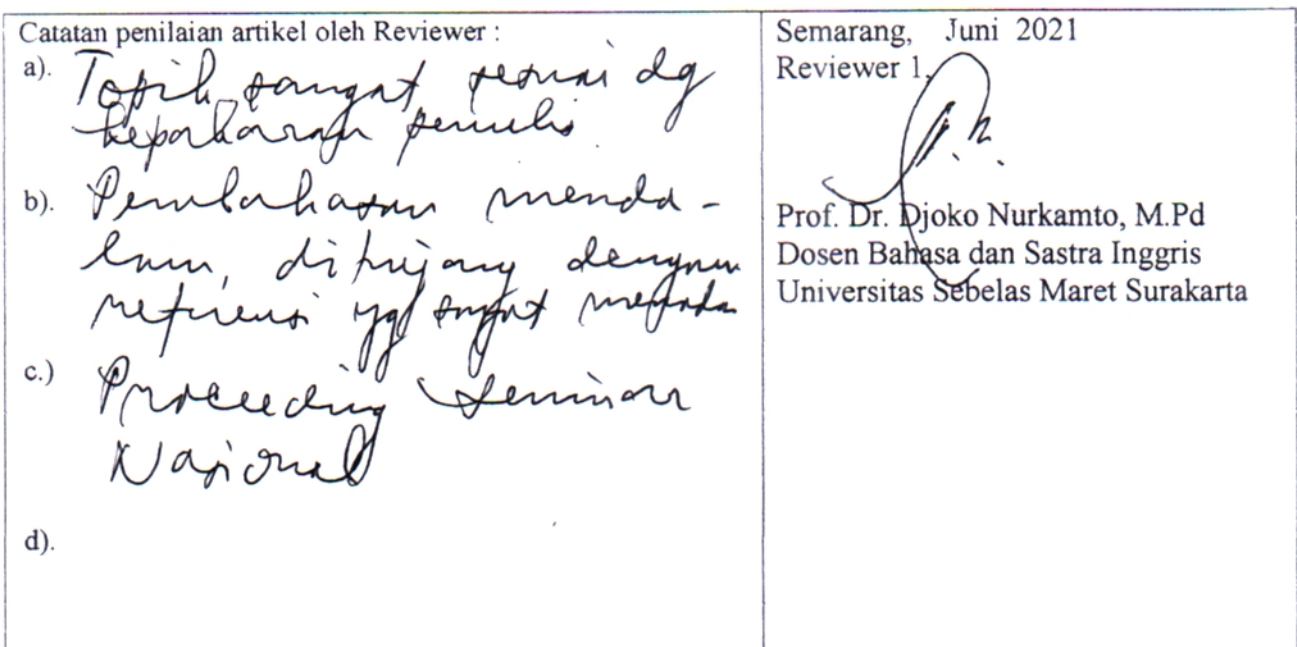 Catatan penilaian artikel oleh Reviewer :
a). Topik sangat sesuai dg
kepakaran penulis
b). Pembahasan menda-
lam, ditunjang dengan
referensi yg sangat
c.) Proceeding Seminar
Nasional
d).
Semarang, Juni 2021
Reviewer 1,
Prof. Dr. Djoko Nurkamto, M.Pd
Dosen Bahasa dan Sastra Inggris
Universitas Sebelas Maret Surakarta